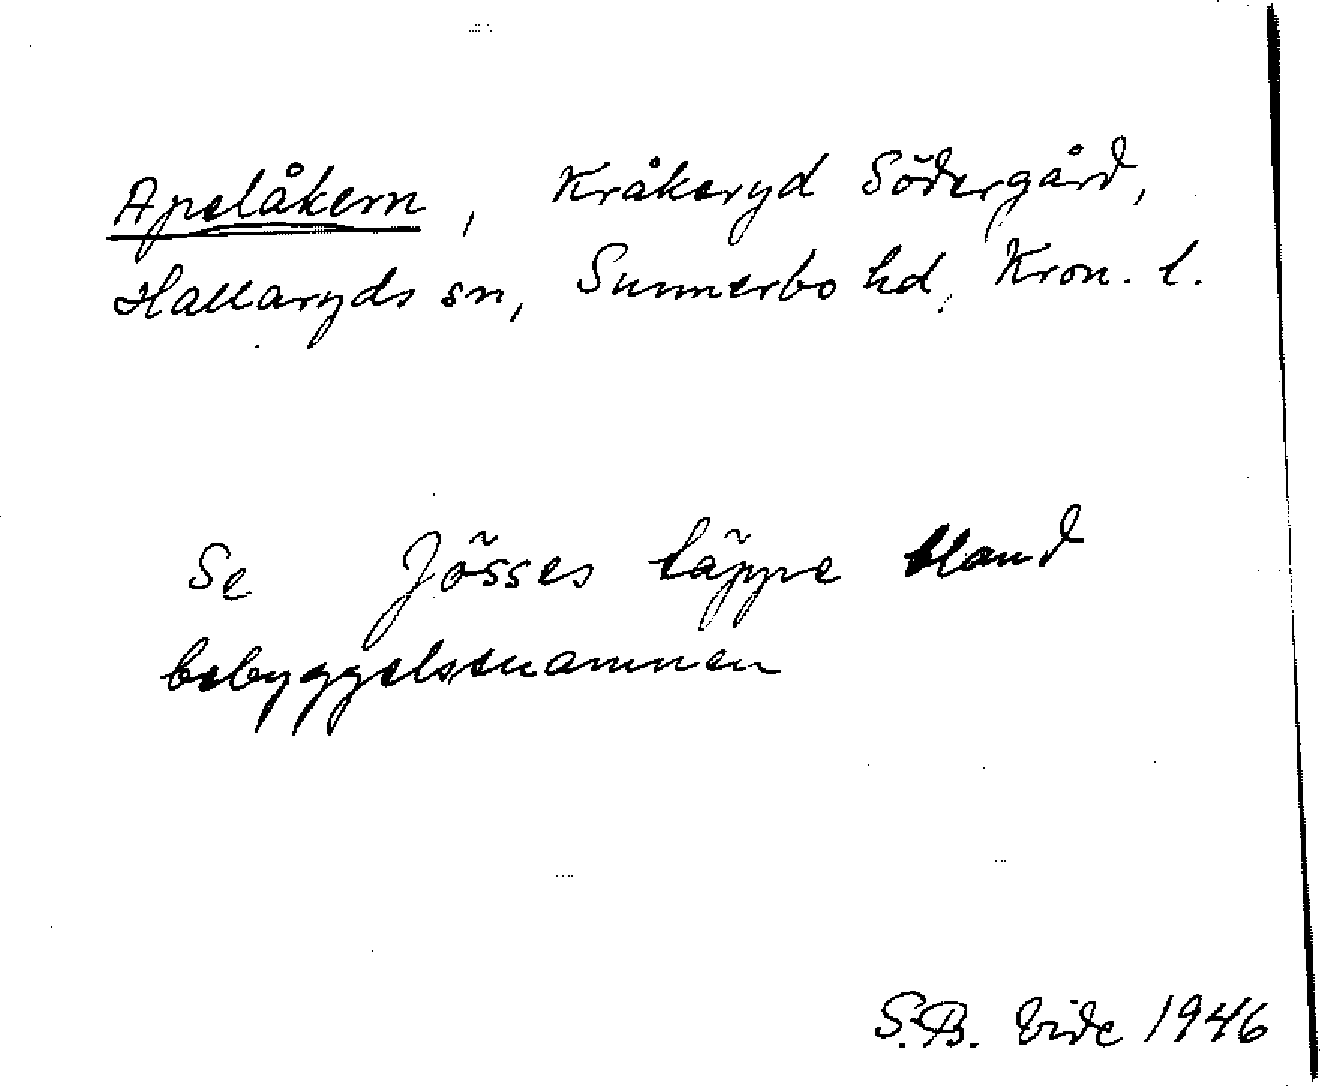 Apelåkern, Kråkeryd Södergård,
Hallaryds sn, Sunnerbo hd, Kron. l.
Se Jösses täppe bland
bebyggelsenamnen
S.B. Vide 1946